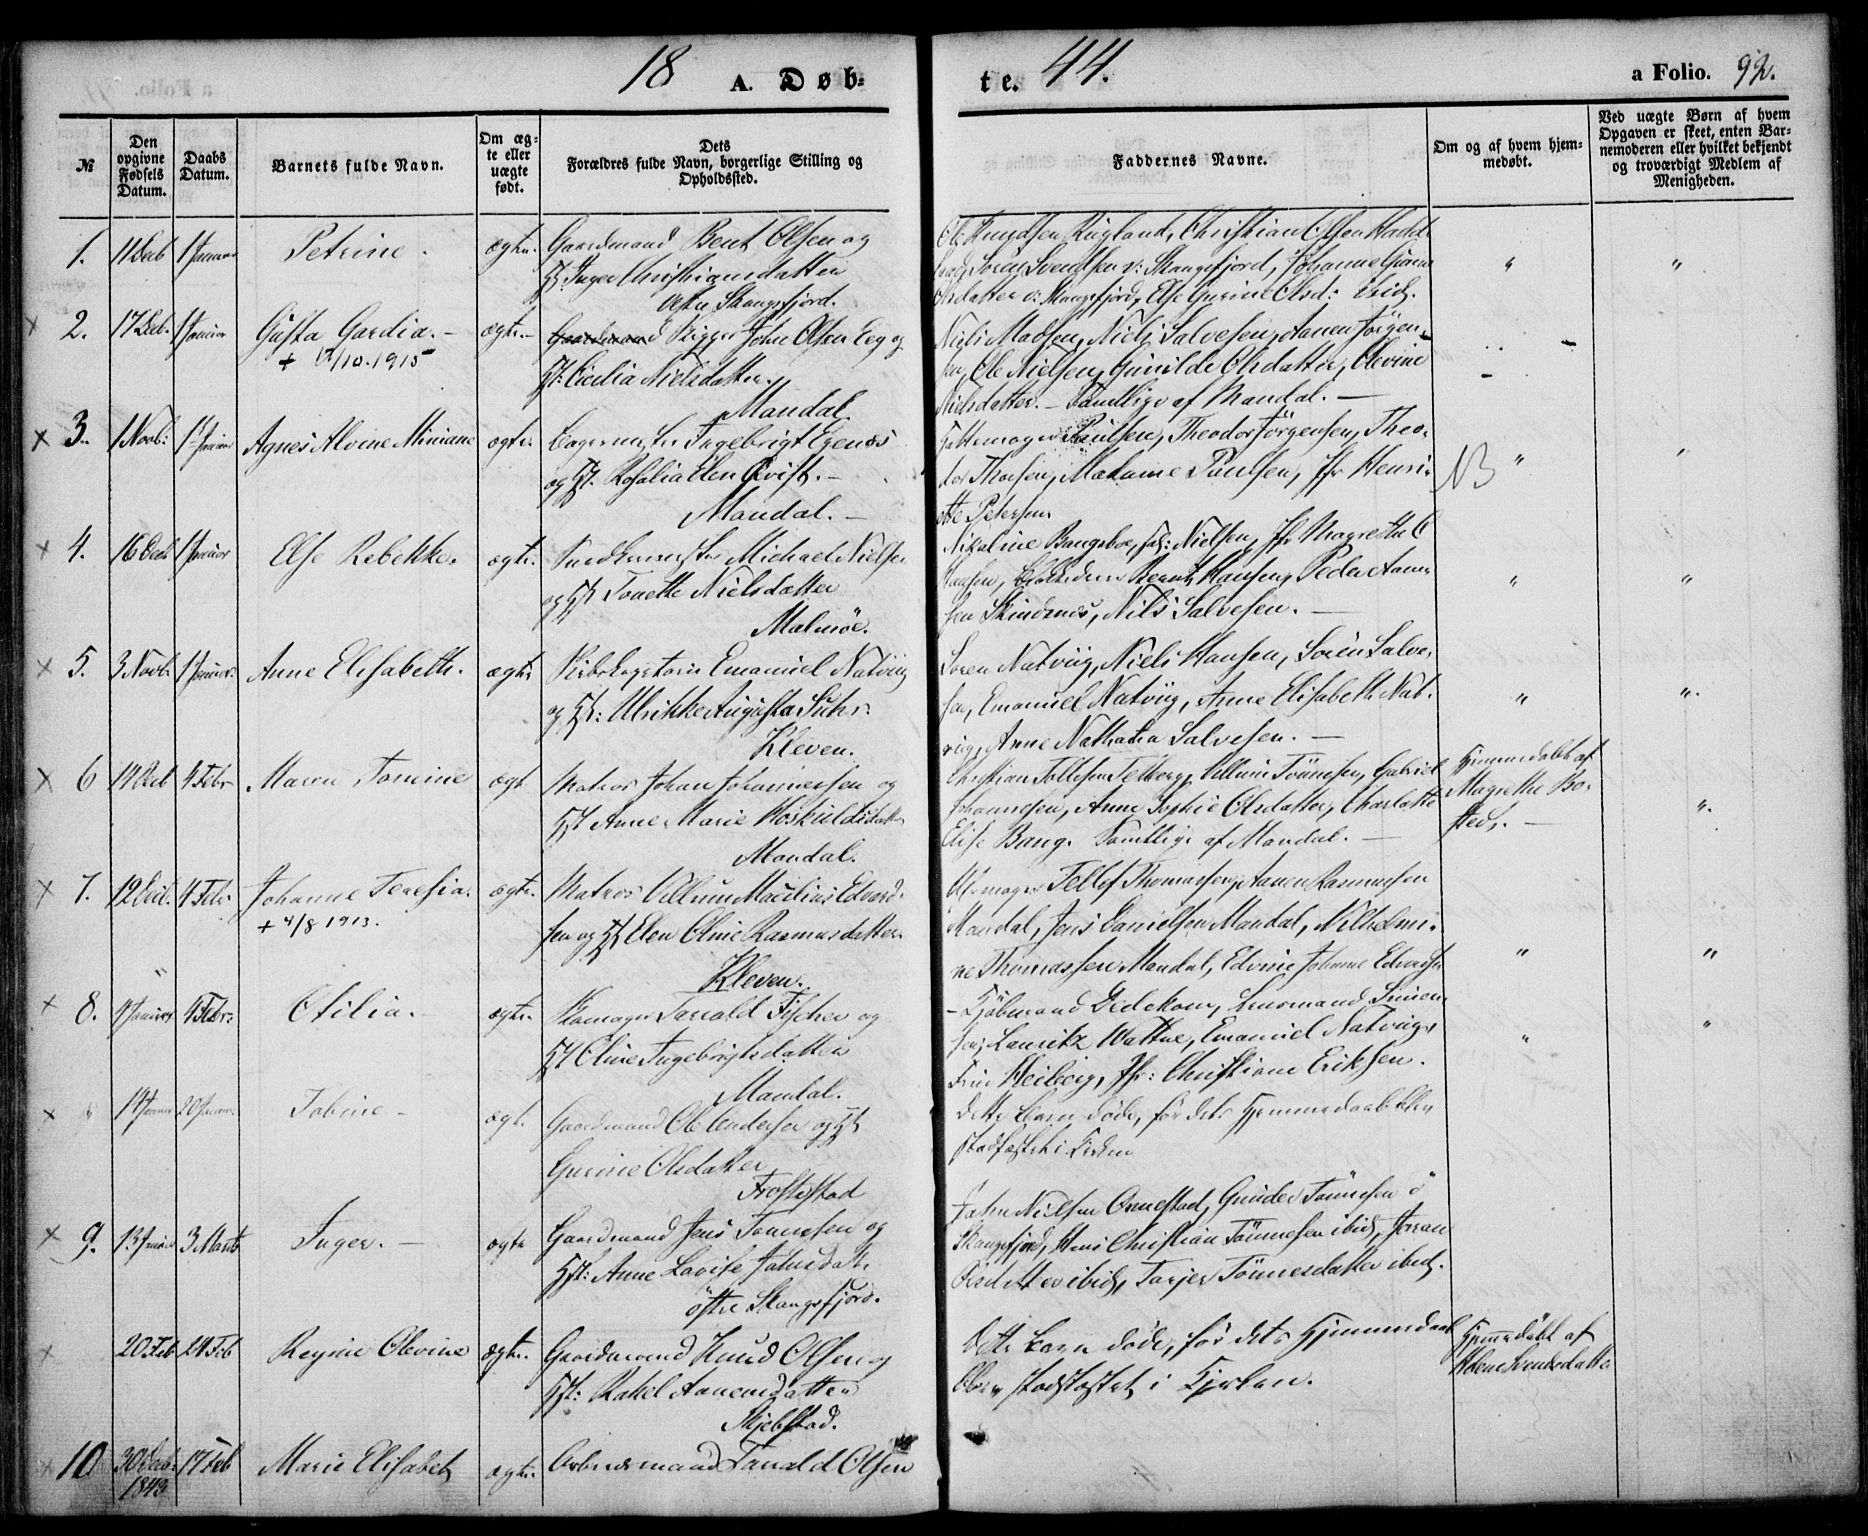 18 A. Døb-
te. 44.
a Folio. 92.
№
Den opgivne Fødsels Datum.
Daabs Datum.
Barnets fulde Navn.
Om ægte eller uægte født.
Dets Forældres fulde Navn, borgerlige Stilling og Opholdssted.
Faddernes Navne.
Om og af hvem hjemmedøbt.
Ved uægte Børn af hvem Opgaven er skeet, enten Barnemoderen eller hvilket bekjendt og troværdigt Medlem af Menigheden.
1. 11 Decb 1 Januar Petrine. ægte.
Gaardmand Bent Olsen og
Hst. Inger Christiansdatter
Skangsfjord.
Ole Knudsen Rugland, Christian Olsen
Sören Svendsen v: Skangsfjord, Johanne
Olsdatter v: Skangsfjord, Else Gurine Olsd: ibid.
2. 17 Decb. 1 Januar Gusta Gardia. ægte.
+ 12/10.1915
Gaardmand Rigger John Olsen Eeg og
Hst: Cicilia Nielsdatter.
Mandal.
Niels Madsen, Niels Salvesen, Aanen Jörgen-
sen, Ole Nielsen, Gunilde Olsdatter, Olevine
Nielsdatter. Samtlige af Mandal.
3. 1 Novb: 1 Januar Agnes Alvine Miniane ægte.
Bagermester Ingebrigt Egenæs
og Hst. Rosalia Elen Qvist.
Mandal.
Paulsen, Theodor Jörgensen, Theo-
dor Thorsen, Madame Paulsen, Jfr Henri-
ette Petersen
NB
4. 16 Decb 1 Januar Else Rebekke. ægte.
Snedkermester Michael Nielsen
og Hst Tonette Nielsdatter
Malmöe.
Nikoline Bangsboe, Nielsen, Jfr Magrethe C
Hansen, Bernt Hansen, Peder Aanen-
sen Skindsnes, Nils Salvesen.
5. 3 Novb 1 Januar. Anne Elisabeth. ægte
Emanuel Natvig
og Hst: Ulrikke Augusta Suhr.
Kleven.
Sören Natviig, Niels Hansen, Sören Salve-
sen, Emanuel Natviig, Anne Elisabeth Nat-
vig, Anne Nathalia Salvesen.
6 14 Decb 4 Febr Maren Tomine ægt
Matros Johan Johannessen og
Hst Anne Marie Höskuldsdatter
Mandal.
Christian Tellefsen Fetberg, Villum Tönnesen, Gabriel
Johannesen, Anne Sophie Olsdatter, Charlotte
Elise Bang. Samtlige af Mandal.
Hjemmedöbt af
Magrethe Bo-
sted.
7. 12 Decb. 4 Febr Johanne Teresia. ægte.
+ 4/8 1913.
Matros Villum Macilius Edvard-
sen og Hst Elen Oline Rasmusdatter.
Kleven.
Tellef Thomassen, Aanen Rasmussen
Mandal, Jens Danielsen Mandal, Vilhelmi-
ne Thomassen Mandal, Edvine Johanne Edvardsen
8. 4 Januar 4 Febr: Otilia. ægte.
Skomager Taraald Fischer og
Hst Oline Ingebrigtsdatter
Mandal.
Kjöbmand Dedekam, Simon-
sen, Lauritz Wattne, Emanuel Natviig,
Frue Heiberg, Jfr: Christiane Eriksen.
14 Januar 20 Januar. Tobine ægt.
Gaardmand Ole Andersen og Hst
Gurine Olsdatter
Frostestad
Dette Barn döde, för dets Hjemmedaab blev
stadfæstet i Kirken
9. 13 Januar 3 Marts Inger. ægte
Gaardmand Jens Tönnesen og
Hst: Anne Lovise Johnsdatt.
östre Skangsfjord.
John Nielsen Ormestad, Gunder Tönnesen ö
Skangsfjord, Hans Christian Tönnesen ibid, Joran
Olsdatter ibid, Tarjer Tönnesdatter ibid.
20 Feb 24 Feb Regine Olevine ægte.
Gaardmand Knud Olsen og
Hst: Rakel Aanensdatter
Skjebstad.
Dette Barn döde, för dets Hjemmedaab
blev stadfæstet i Kirken.
Hjemmedöbt af
Helene Svendsdatter
10 30 Decb. 1843 17 Feb Marie Elisabet ægte.
Arbeidsmand Taraald Olsen